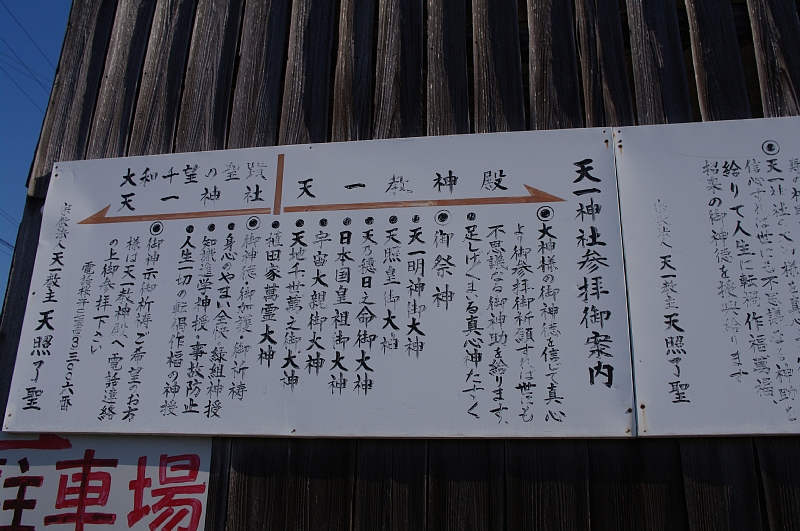 天一神社参拝御案内
天一教神殿
大和千望の聖蹟社
天一神
◎大神様の御神徳を信じて真心
より御参拝御祈願すれば世にも
不思議なる御神助を給ります
足しげくまゐる真心神たすく
◎御祭神
天一明神御大神
天照皇御大神
天乃穂日之命御大神
日本国皇祖御大神
宇宙大親御大神
天地千世萬之御大神
植田家萬霊大神
◎御神徳・御加護・御祈祷
身心のやまい全快・縁組神授
知識進学神授・事故防止
人生一切の転禍作福の神授
◎御神示御祈祷ご希望のお方
様は天一教神殿へ電話連絡
の上御参拝下さい
天一教主 天照了聖
◎
天一神社
信心すれば世にも不思議なる神助を
給りて人生に転禍作福萬福
招来の御神徳を授共給ります
天一教主 天照了聖
駐車場